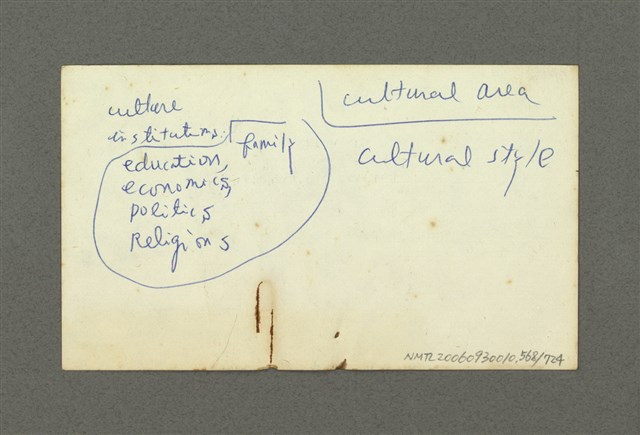 culture
institutions:
family
education,
economics,
politics
Religions
cultural area
cultural style
NMTL20060930010.568/724